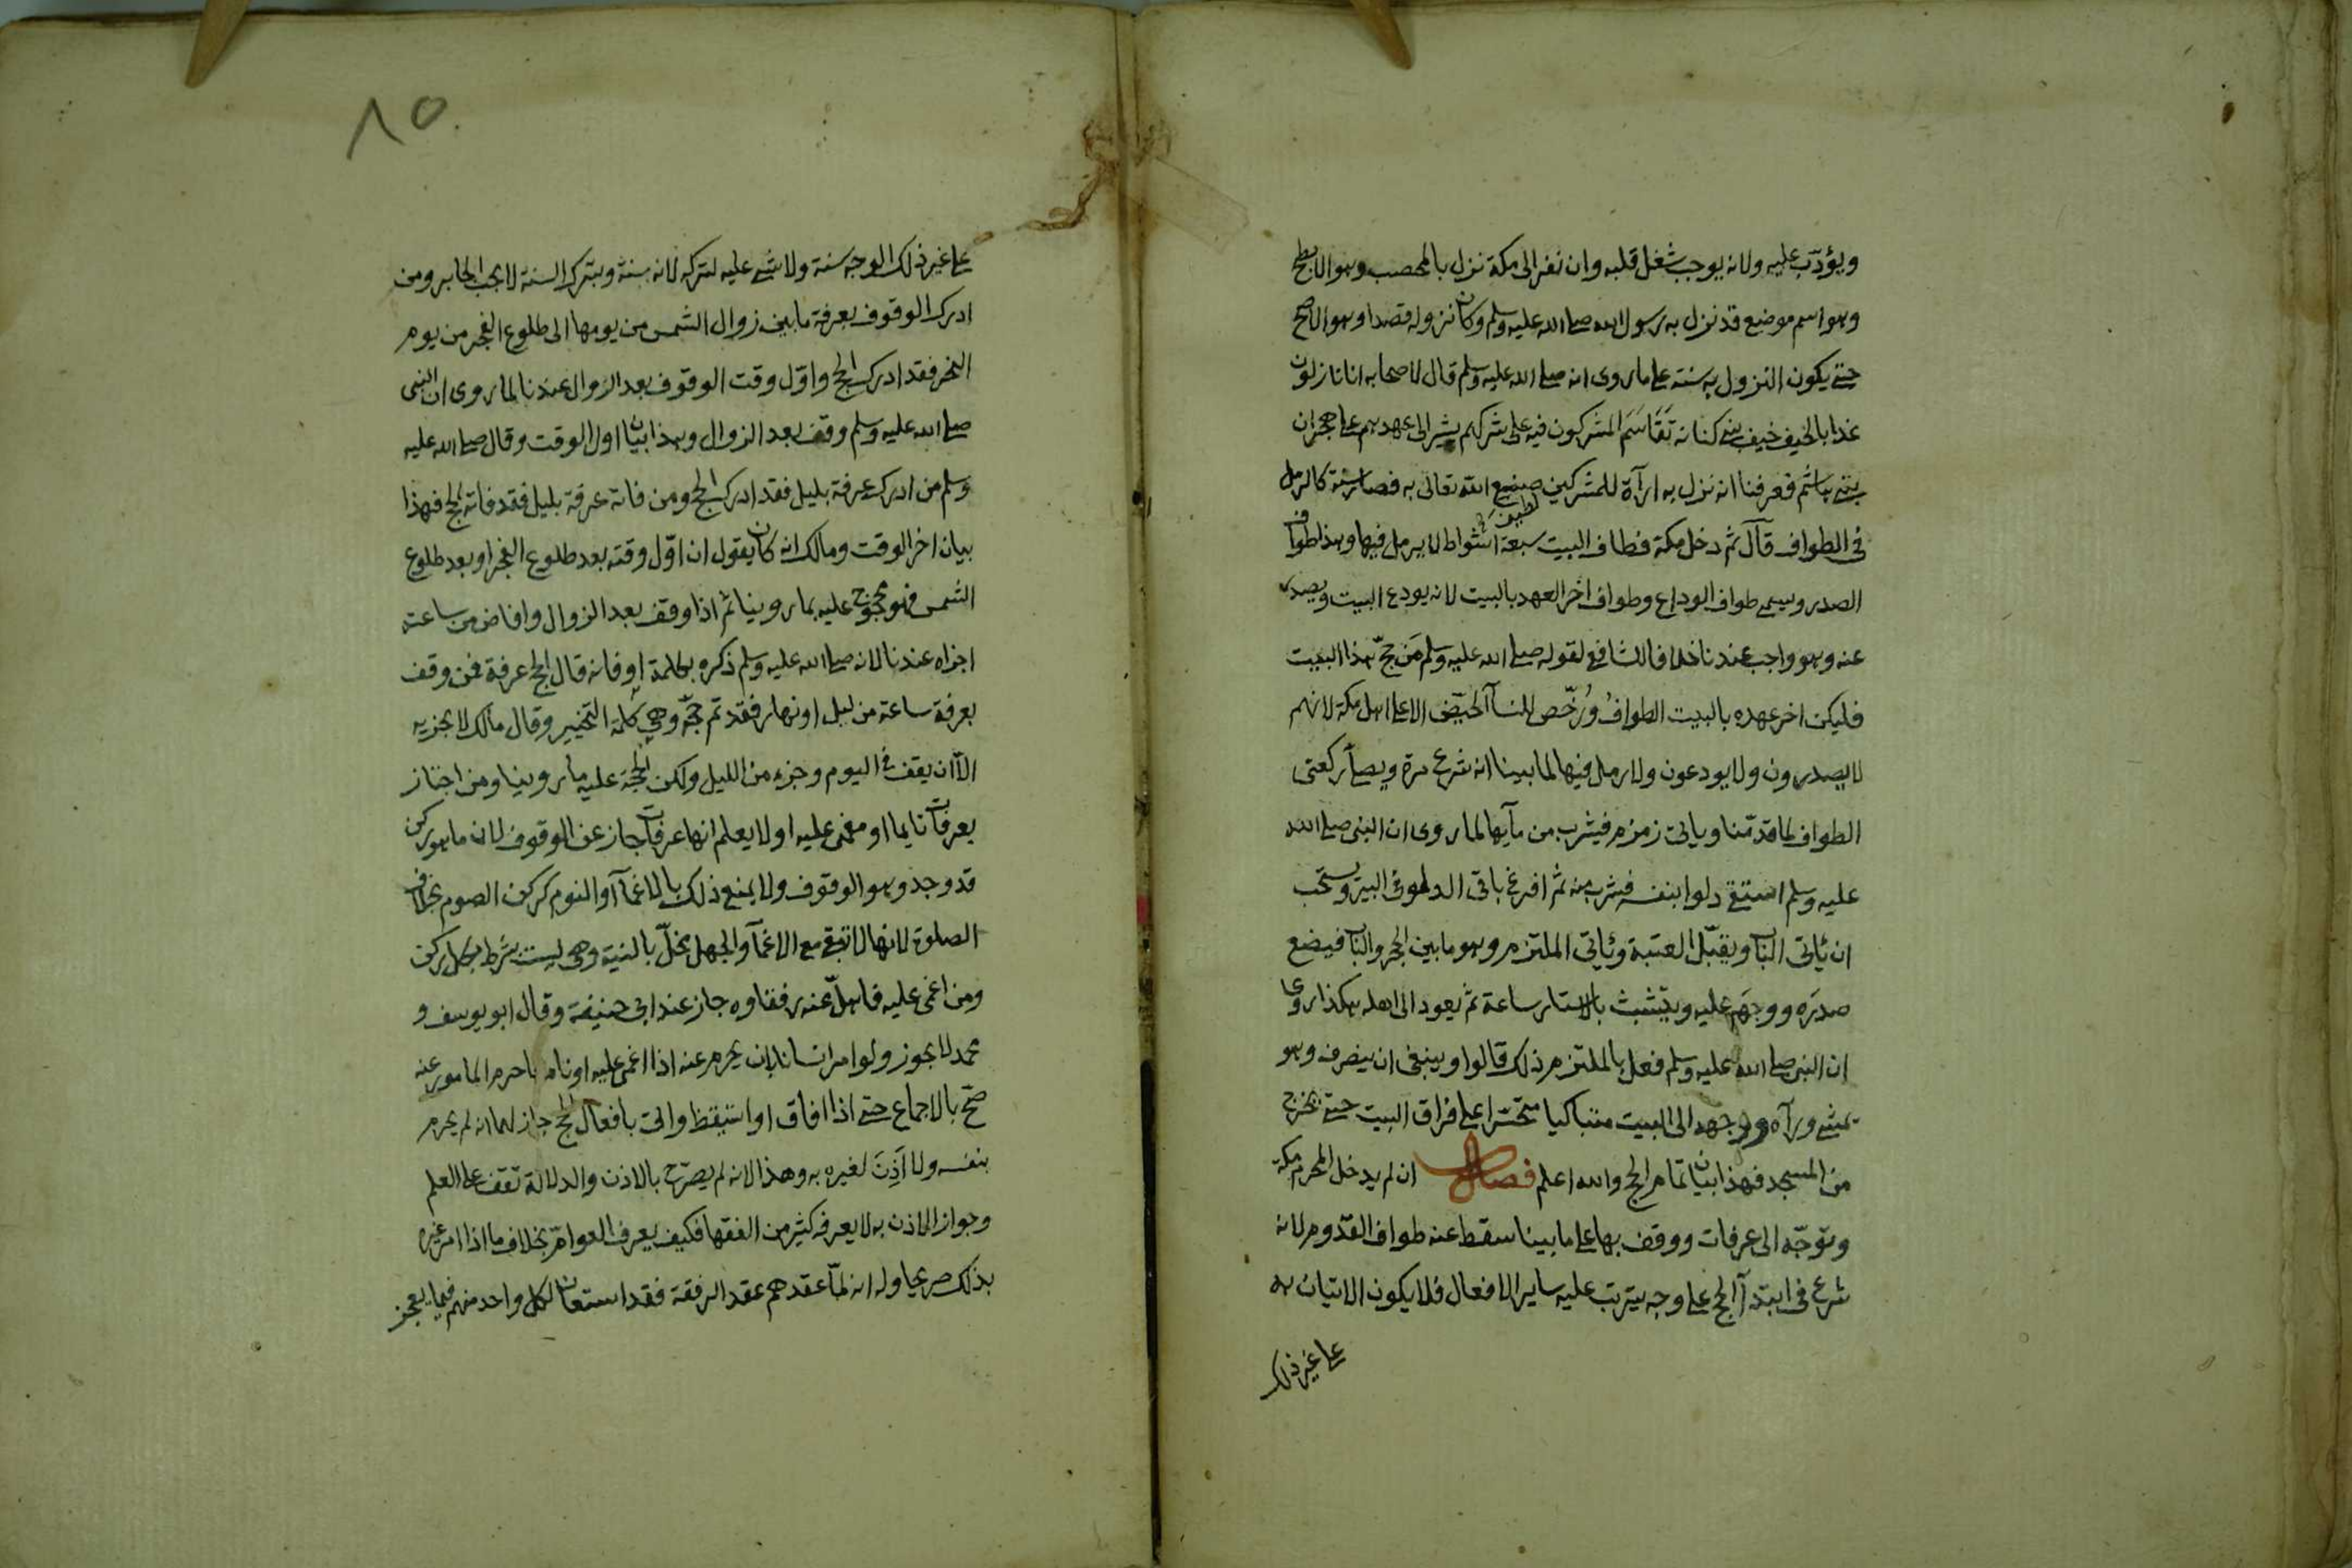 ويؤدّب عليه ولانه يوجب شغل قلبه وان نفر الى مكة نزل بالمحصب وهو الابطح
وهو اسم موضع قد نزل به رسول الله صلى الله عليه وسلم وكان نزوله قصدا وهو الاصح
حتى يكون النزول به سنته على ما روى انه صلى الله عليه وسلم قال لاصحابه انا نازلون
غدا بالخيف خيف بنى كنانه تَقَاسَمَ المشركون فيه على شركهم يشير الى عهدهم على هجران
بنى هاشم فعرفنا انه نزل به ارآة للمشركين لطيف صنيع الله تعالى به فصار سنة كالرمل
فى الطواف قآل ثم دخل مكة فطاف البيت سبعة اشواط لا يرمل فيها وهذا طواف
الصدر ويسمى طواف الوداع وطواف اخر العهد بالبيت لانه يودع البيت ويصدر
عنه وهو واجب عندنا خلافا للشافعى لقوله صلى الله عليه وسلم مَن حجّ هذا البيت
فليكن اخر عهده بالبيت الطوافُ ورُخّص للنسآ الحيّض الا على اهل مكة لانهم
لا يصدرون ولا يودعون ولا رمل فيها لما بينا انه شرع مرة ويصلى ركعتى
الطواف لما قدمّنا وياتى زمزم فيشرب من مآيها لما روى ان النبى صلى الله
عليه وسلم استقى دلوا بنفسه فشرب منه ثم افرغ باقى الدلو فى البير ويستحب
ان ياتى الباب ويقبّل العتبة وياتى الملتزم وهو ما بين الحجر والباب فيضع
صدرَه ووجهَه عليه ويتشبث بالاستار ساعة ثم يعود الى اهله هكذا روى
ان النبى صلى الله عليه وسلم فعل بالملتزم ذلك قالوا وينبغى ان ينصرف وهو
يمشى ورآه ووجهه الى البيت متباكيا متحسّرا على فراق البيت حتى يخرج
من المسجد فهذا بيان تمام الحج والله اعلم فصل ان لم يدخل المحرم مكة
وتوجّه الى عرفات ووقف بها على ما بينا سقط عنه طواف القدوم لانه
شرع فى ابتدآ الحج على وجه يترتب عليه ساير الافعال فلا يكون الاتيان به
على غير ذلك
٨٥
على غير ذلك الوجه سنة ولا شى عليه لتركه لانه سنة وبترك السنة لا يجب الجابر ومن
ادرك الوقوف بعرفة ما بين زوال الشمس من يومها الى طلوع الفجر من يوم
النحر فقد ادرك الحج واوّل وقت الوقوف بعد الزوال عندنا لما روى ان النبى
صلى الله عليه وسلم وقف بعد الزوال وهذا بيان اول الوقت وقال صلى الله عليه
وسلم من ادرك عرفة بليل فقد ادرك الحج ومن فاته عرفة بليل فقد فاته الحج فهذا
بيان اخر الوقت ومالك انه كان يقول ان اوّل وقته بعد طلوع الفجر او بعد طلوع
الشمس فهو محجوج عليه بما روينا ثم اذا وقف بعد الزوال وافاض من ساعته
اجزاه عندنا لانه صلى الله عليه وسلم ذكره بكلمة او فانه قال الحج عرفة فمن وقف
بعرفة ساعة من ليل او نهار فقد تم حجّه وهى كلمة التخيير وقال مالك لا يجزيه
الاّ ان يقف فى اليوم وجزء من الليل ولكن الحجة عليه ما روينا ومن اجتاز
بعرفات نايما او مغمى عليه او لا يعلم انها عرفات جاز عن الوقوف لان ما هو ركن
قد وجد وهو الوقوف ولا يمنع ذلك بالاغمآ او النوم كركن الصوم بخلاف
الصلوة لانها لا تبقى مع الاغمآ والجهل يخلّ بالنية وهى ليست بشرط بكل ركن
ومن اغمى عليه فاهلّ عنه رفقاوه جاز عند ابى حنيفة وقال ابو يوسف و
محمد لا يجوز ولو امر انسانا بان يحرم عنه اذا اغمى عليه او نام فاحرم المامور عنه
صحّ بالاجماع حتى اذا افاق او استيقظ واتى بافعال الحج جاز لهما انه لم يحرم
بنفسه ولا اَذِنَ لغيره به وهذا لانه لم يصرّح بالاذن والدلالة تقف على العلم
وجواز الاذن به لا يعرفه كثير من الفقها فكيف يعرفه العوامّ بخلاف ما اذا امر غيره
بذلك صريحا وله انه لمّا عقدهم عقد الرفقة فقد استعان لكل واحد منهم فيما يعجز